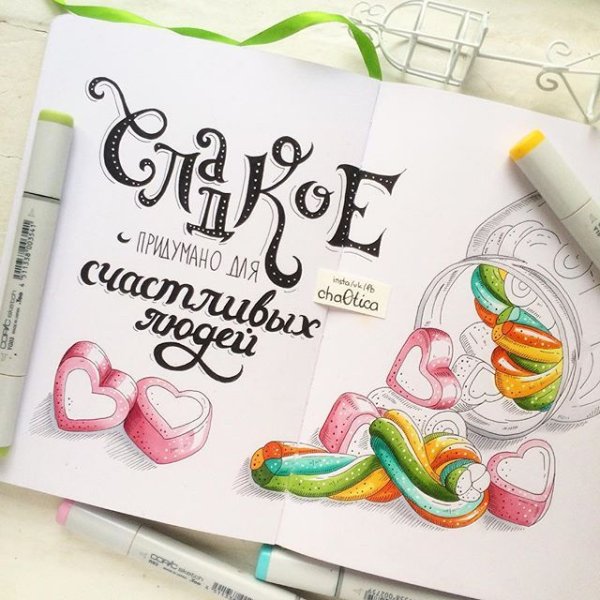 Сладкое
придумано для
счастливых
людей
insta/vk/fb
cha0tica
COPIC sketch
COPIC sketch